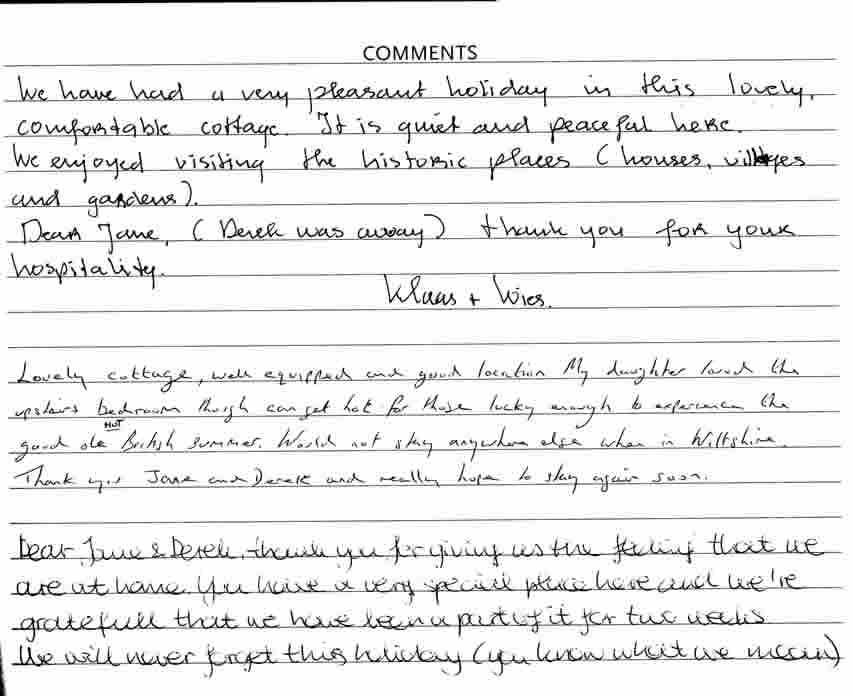 COMMENTS
We have had a very pleasant holiday in this lovely,
comfortable cottage. It is quiet and peaceful here.
We enjoyed visiting the historic places (houses, villages
and gardens).
Dear Jane, (Derek was away) thank you for your
hospitality.
Klaas + Wies.
Lovely cottage, well equipped and good location My daughter loved the
upstairs bedroom though can get hot for those lucky enough to experience the
good ole HOT British summer. Would not stay anywhere else when in Wiltshire.
Thank you Jane and Derek and really hope to stay again soon.
Dear Jane & Derek, thank you for giving us the feeling that we
are at home. You have a very special place here and we're
gratefull that we have been a part of it for two weeks
We will never forget this holiday (you know what we mean)